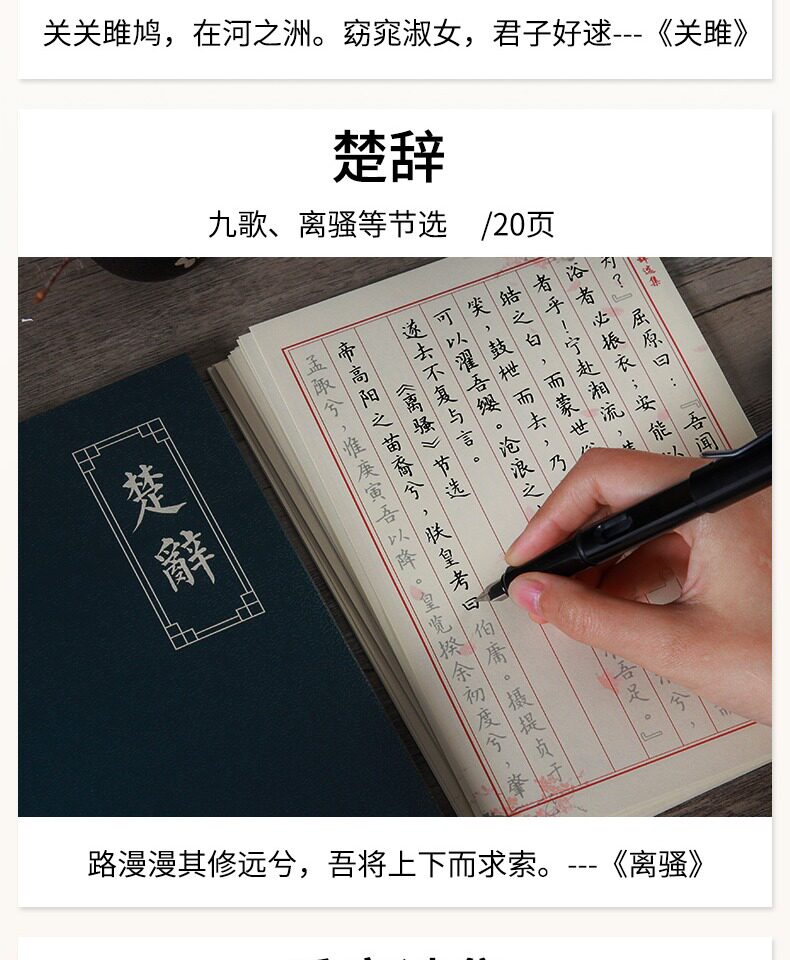 关关雎鸠，在河之洲。窈窕淑女，君子好逑---《关雎》
楚辞
九歌、离骚等节选 /20页
楚辭
辞选集
为？』屈原曰：『吾闻
浴者必振衣；安能以
者乎！宁赴湘流，葬
皓之白，而蒙世俗
笑，鼓枻而去，乃 兮，
可以濯吾缨。沧浪之 吾足。』
遂去不复与言。
《离骚》节选
帝高阳之苗裔兮，朕皇考曰伯庸。摄提贞于
孟陬兮，惟庚寅吾以降。皇览揆余初度兮，肇
路漫漫其修远兮，吾将上下而求索。---《离骚》